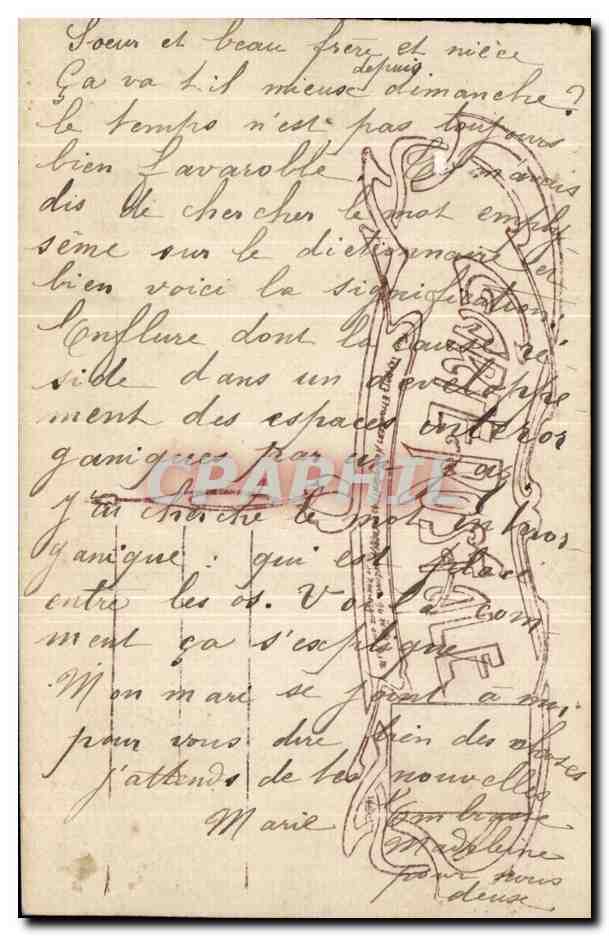 Soeur et beau frère et nièce
Ça va t.il mieux depuis dimanche?
le temps n'est pas toujours
bien favaroble. Tu m'avais
dis de chercher le mot emphy
sème sur le dictionnaire et
bien voici la signification:
Enflure dont la cause ré
side dans un développe
ment des espaces interor
ganiques par un gaz
j'ai cherché le mot interor
ganique: qui est placé
entre les os. Voila com
ment ça s'explique
Mon mari se joint à moi
pour vous dire bien des choses
j'attends de tes nouvelles
Marie
Madeleine
pour nous
deux
CARTE POSTALE
CPARHIL